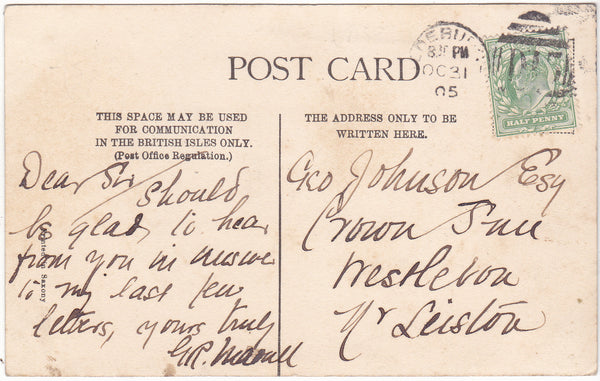 POST CARD
8.35 PM
OC 21
05
HALF PENNY
THIS SPACE MAY BE USED
FOR COMMUNICATION
IN THE BRITISH ISLES ONLY.
(Post Office Regulation.)
Dear Sir Should
be glad to hear
from you in answer
to my last few
letters, yours truly
G.R.
Printed in Saxony
THE ADDRESS ONLY TO BE
WRITTEN HERE.
Geo Johnson Esq
Crown Inn
Westleton
Nr Leiston